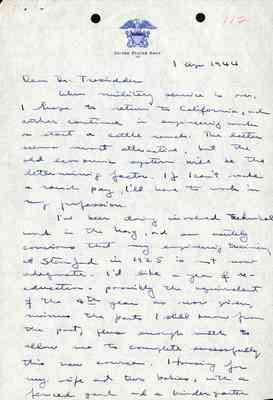 112
UNITED STATES NAVY
1 Apr 1944
Dear Dr. Tresidder
When military service is over
I hope to return to California, and
either continue in engineering work
or start a cattle ranch. The latter
seems most attractive, but the
old economic system will be the
determining factor. If I can't make
a ranch pay, I'll have to work in
my profession.
I've been doing involved technical
work in the Navy, and am acutely
conscious that my engineering training
at Stanford in 1925 is not now
adequate. I'd like a year of re-
education - possibly the equivalent
of the 4th year as now given,
minus the parts I still know from
the past, plus enough math to
allow me to complete successfully
this new course. Housing for
my wife and two babies, with a
fenced yard and a kindergarten